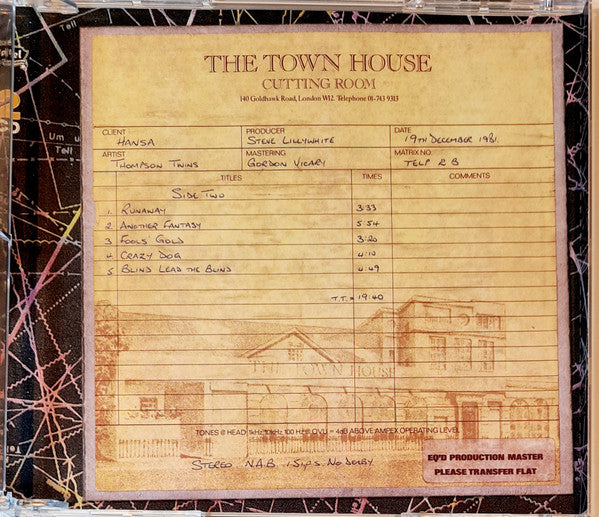 THE TOWN HOUSE
CUTTING ROOM
140 Goldhawk Road, London W12. Telephone 01-743 9313
CLIENT HANSA
PRODUCER STEVE LILLYWHITE
DATE 19TH DECEMBER 1981.
ARTIST THOMPSON TWINS
MASTERING GORDON VICARY
MATRIX NO. TELP 2 B
TITLES TIMES COMMENTS
SIDE TWO
1. RUNAWAY 3:33
2 ANOTHER FANTASY 5:54
3 FOOLS GOLD 3:20
4. CRAZY DOG 4:10
5 BLIND LEAD THE BLIND 4:49
T.T. = 19:40
THE TOWN HOUSE
TONES @ HEAD 1kHz 10kHz 100 Hz = 4dB ABOVE AMPEX OPERATING LEVEL
STEREO N.A.B. 15ips. NO DOLBY
EQ'D PRODUCTION MASTER
PLEASE TRANSFER FLAT
Tell
Um u
Tell